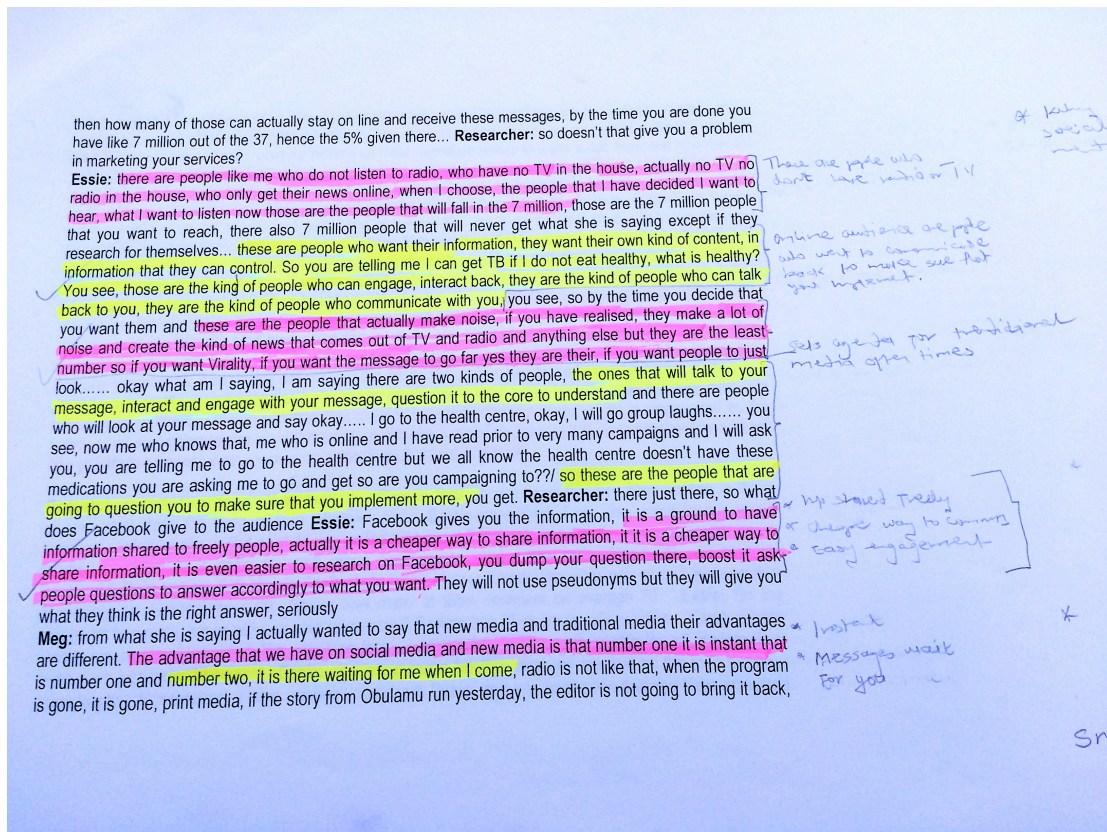 then how many of those can actually stay on line and receive these messages, by the time you are done you
have like 7 million out of the 37, hence the 5% given there… Researcher: so doesn't that give you a problem
in marketing your services?
Essie: there are people like me who do not listen to radio, who have no TV in the house, actually no TV no
radio in the house, who only get their news online, when I choose, the people that I have decided I want to
hear, what I want to listen now those are the people that will fall in the 7 million, those are the 7 million people
that you want to reach, there also 7 million people that will never get what she is saying except if they
research for themselves… these are people who want their information, they want their own kind of content, in
information that they can control. So you are telling me I can get TB if I do not eat healthy, what is healthy?
You see, those are the kind of people who can engage, interact back, they are the kind of people who can talk
back to you, they are the kind of people who communicate with you, you see, so by the time you decide that
you want them and these are the people that actually make noise, if you have realised, they make a lot of
noise and create the kind of news that comes out of TV and radio and anything else but they are the least
number so if you want Virality, if you want the message to go far yes they are their, if you want people to just
look…… okay what am I saying, I am saying there are two kinds of people, the ones that will talk to your
message, interact and engage with your message, question it to the core to understand and there are people
who will look at your message and say okay….. I go to the health centre, okay, I will go group laughs…… you
see, now me who knows that, me who is online and I have read prior to very many campaigns and I will ask
you, you are telling me to go to the health centre but we all know the health centre doesn't have these
medications you are asking me to go and get so are you campaigning to??/ so these are the people that are
going to question you to make sure that you implement more, you get. Researcher: there just there, so what
does Facebook give to the audience Essie: Facebook gives you the information, it is a ground to have
information shared to freely people, actually it is a cheaper way to share information, it it is a cheaper way to
share information, it is even easier to research on Facebook, you dump your question there, boost it ask
people questions to answer accordingly to what you want. They will not use pseudonyms but they will give you
what they think is the right answer, seriously
Meg: from what she is saying I actually wanted to say that new media and traditional media their advantages
are different. The advantage that we have on social media and new media is that number one it is instant that
is number one and number two, it is there waiting for me when I come, radio is not like that, when the program
is gone, it is gone, print media, if the story from Obulamu run yesterday, the editor is not going to bring it back,
social
There are people who
don't have radio or TV
online audience are people
who want to communicate
back to make sure that
you implement.
sets agenda for traditional
media often times
* Info shared freely
* cheaper way to
* Easy engagement
* Instant
* Messages wait
For you